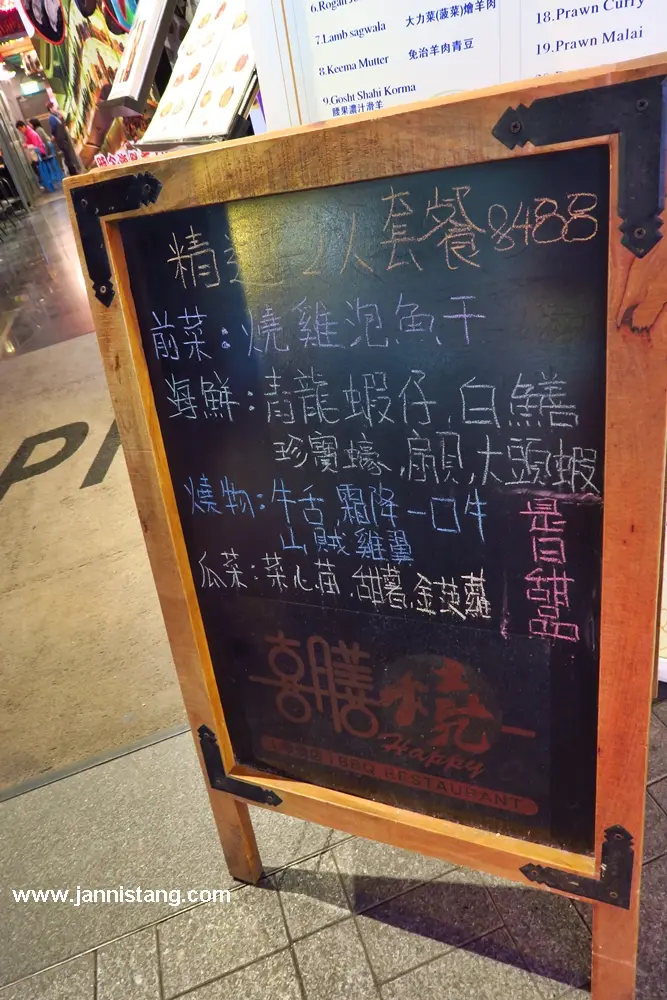 6.Rogan
7.Lamb sagwala 大力菜(菠菜)燴羊肉
8.Keema Mutter 免治羊肉青豆
9.Gosht Shahi Korma
腰果濃汁滑羊
18.Prawn Curry
19.Prawn Malai
精選 2人套餐 $488
前菜:燒雞泡魚干
海鮮:青龍蝦仔,白鱔
珍寶蠔,扇貝,大頭蝦
燒物:牛舌,霜降一口牛
山賊雞翼
瓜菜:菜心苗,甜薯,金菠蘿
是日甜品
喜膳燒
Happy
BBQ RESTAURANT
PI
www.jannistang.com